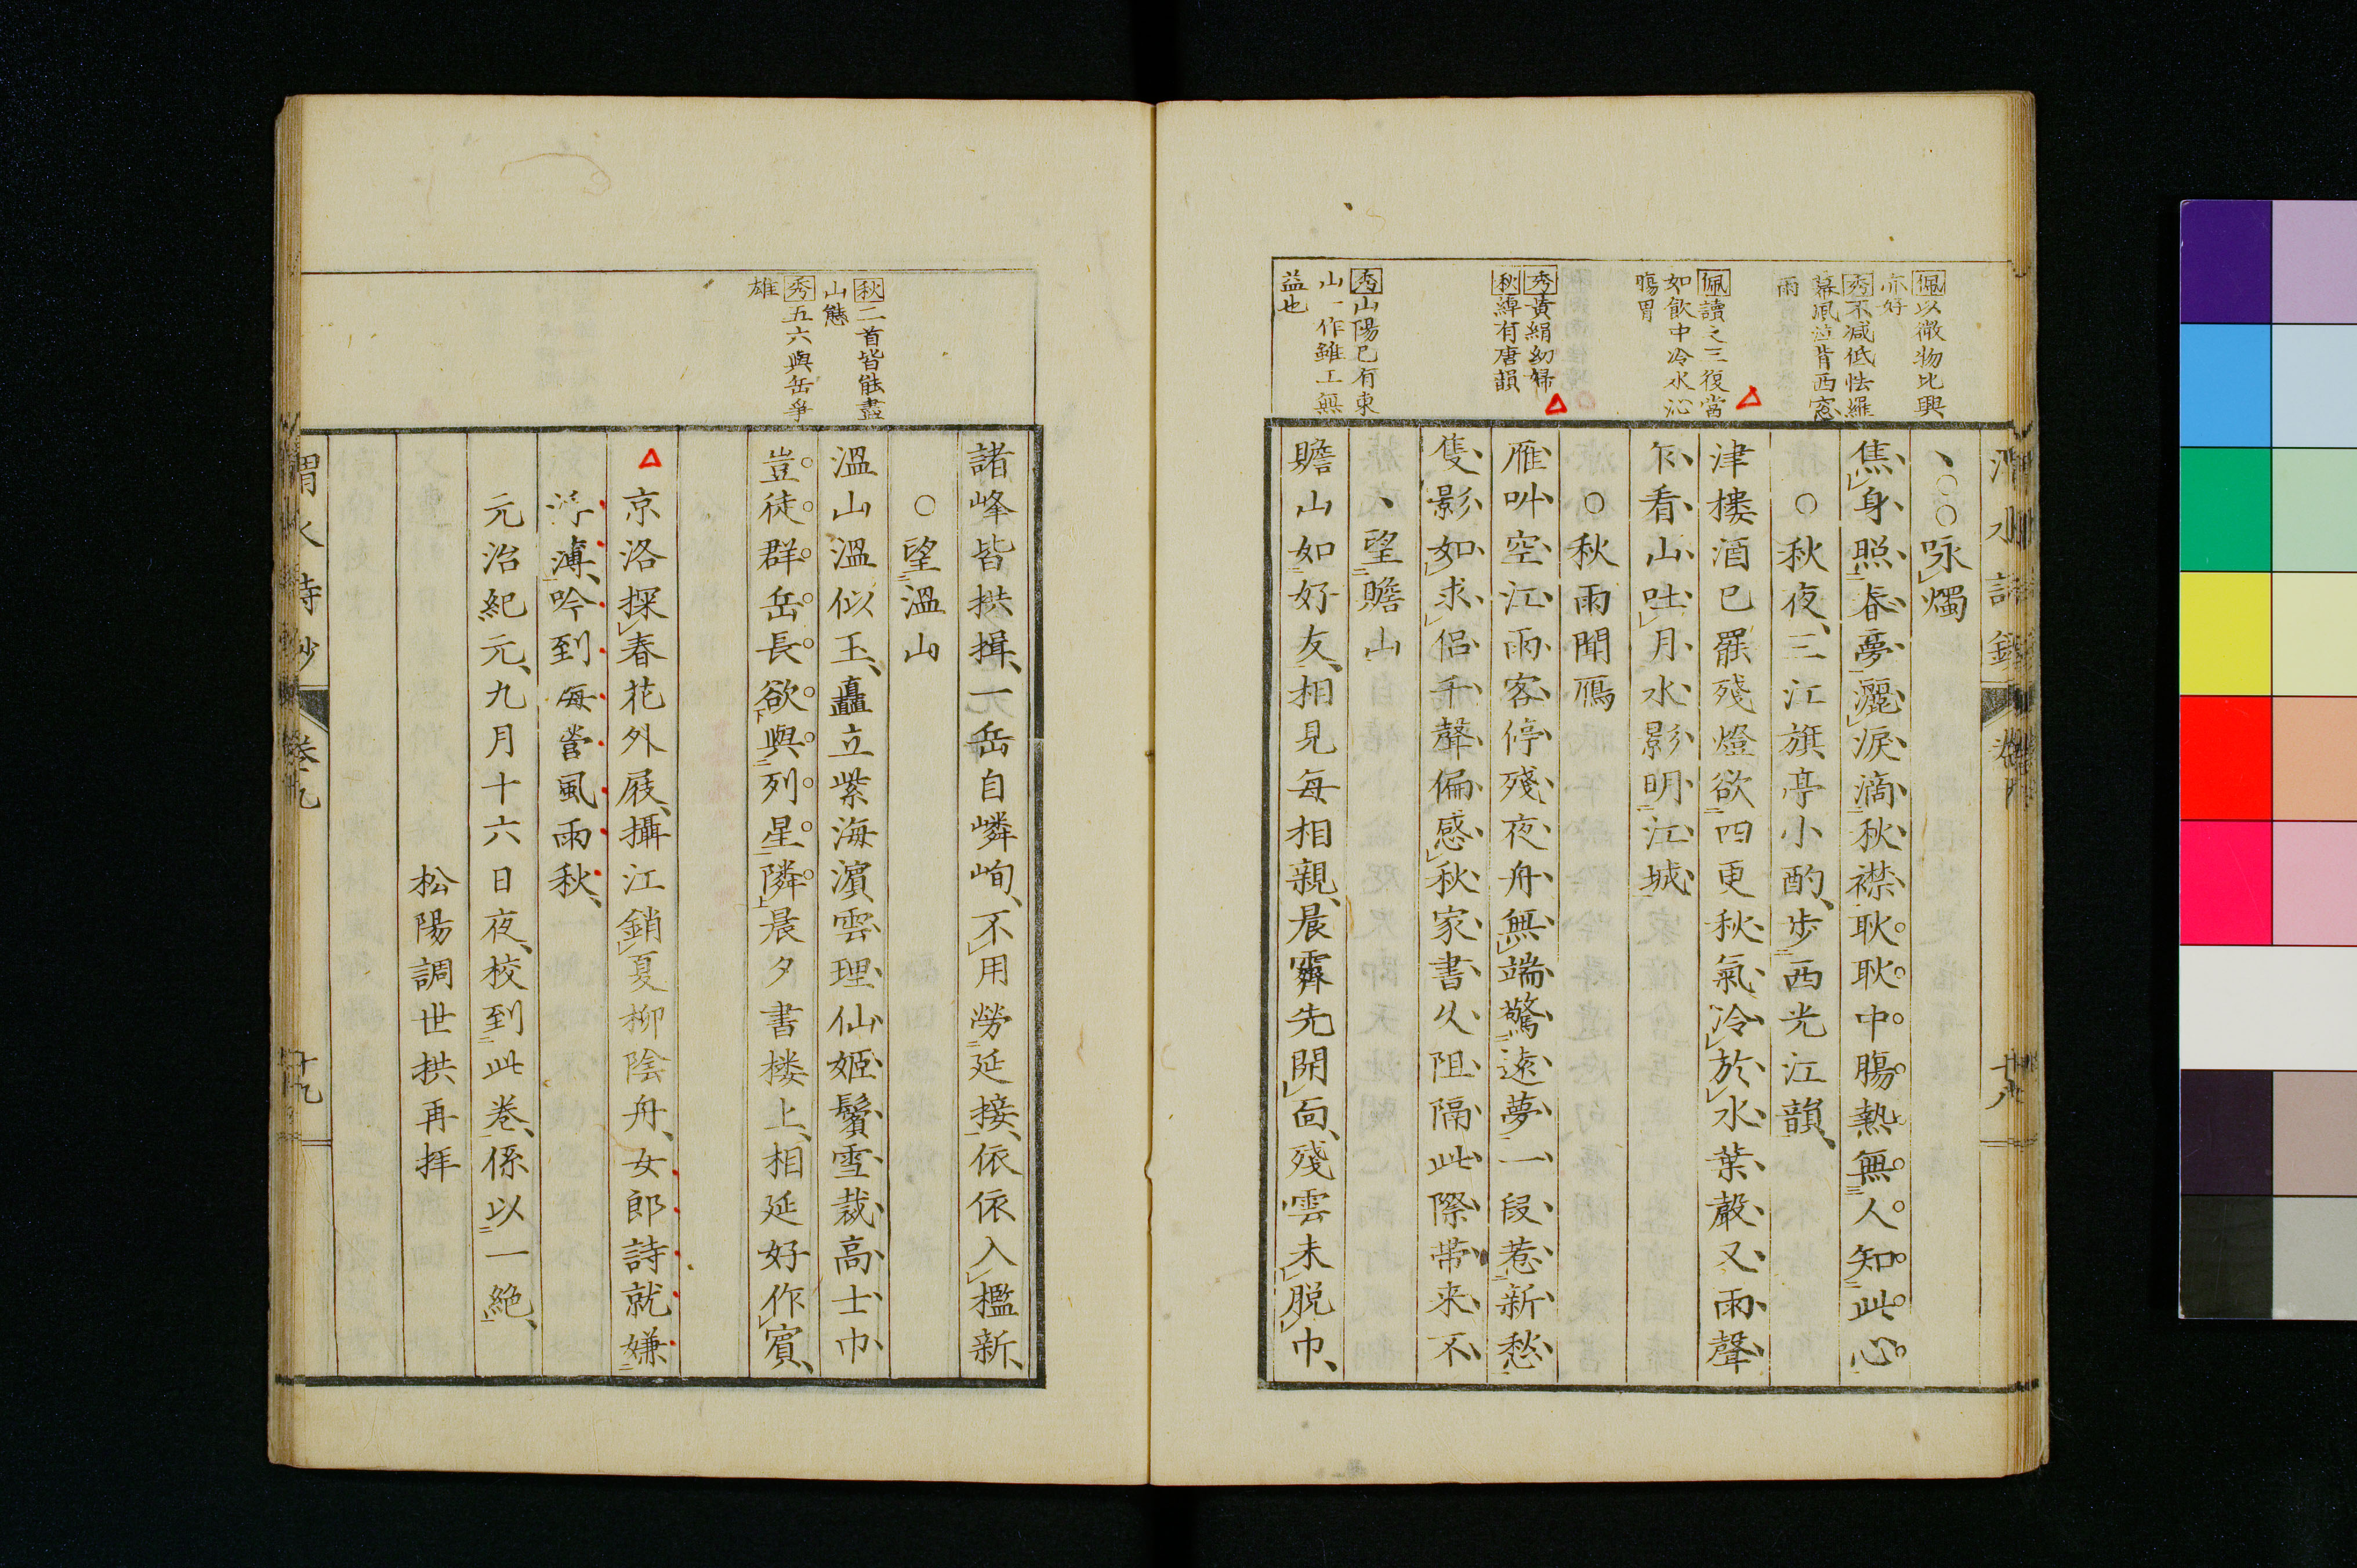 佩以微物比興
亦好
秀不减低怯羅
幕風泣背西窓
雨
佩讀之三復當
如飲中冷水沁
膓胃
秀黄絹幼婦
秋綽有唐韻
秀山陽已有東
山一作雖工無
益也
咏燭
焦身照春夢灑淚滴秋襟耿耿中膓熱無人知此心
秋夜三江旗亭小酌歩西光江韻
津樓酒已罷殘燈欲四更秋氣冷於水葉嚴又雨聲
乍看山吐月水影明江城
秋雨聞鴈
雁叫空江雨客停殘夜舟無端驚遠夢一段惹新愁
隻影如求侣千聲偏感秋家書久阻隔此際帶来不
望贍山
贍山如好友相見每相親晨霽先開面殘雲未脱巾
卷九
十八
秋二首皆能盡
山態
秀五六與岳爭
雄
諸峰皆拱揖一岳自嶙峋不用勞延接依依入檻新
望温山
温山温似玉矗立紫海濵雲理仙姬鬢雪裁高士巾
豈徒群岳長欲與列星隣晨夕書楼上相延好作賓
京洛探春花外屐攝江銷夏柳陰舟女郎詩就嫌
浮薄吟到每當風雨秋
元治紀元九月十六日夜校到此卷係以一絶
松陽調世拱再拝
渭水詩鈔
卷九
十九